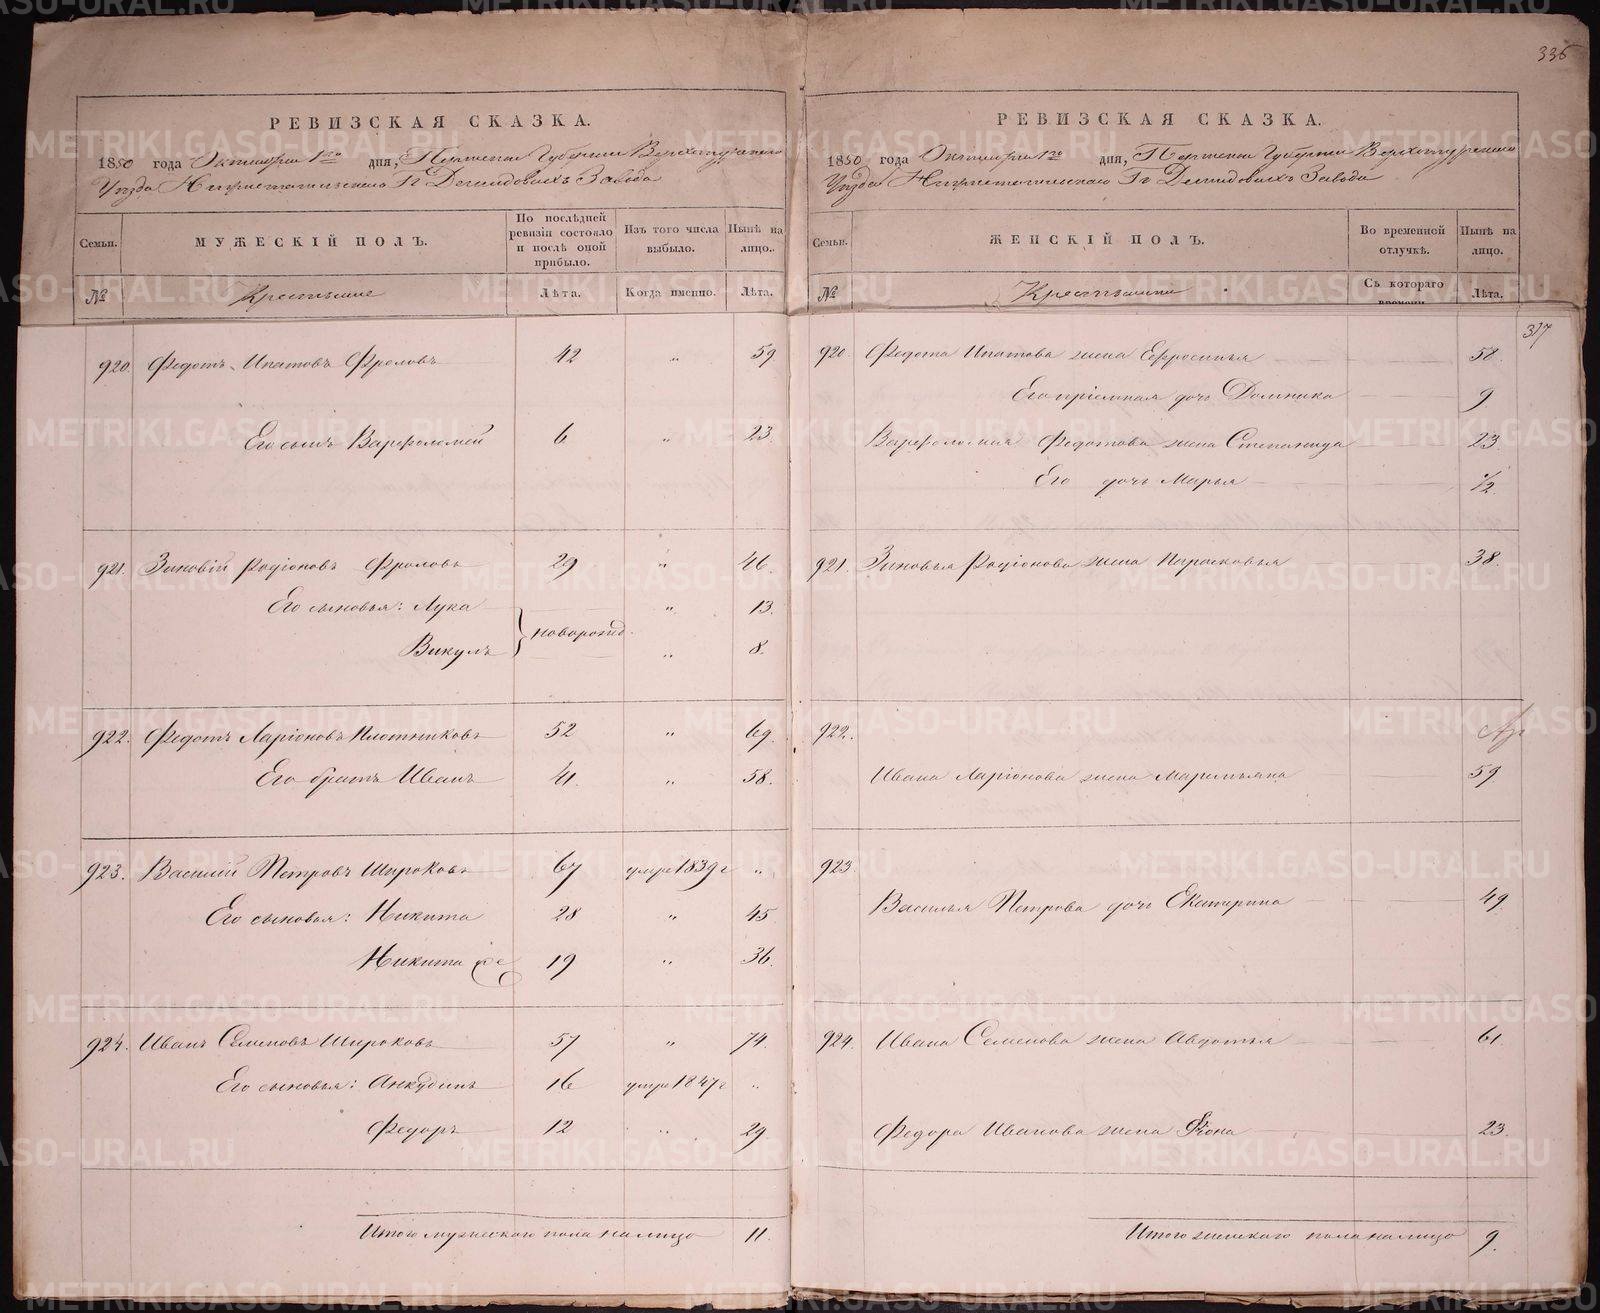 335
РЕВИЗСКАЯ СКАЗКА.
1850 года Октября 1го дня, Пермской Губернии Верхотурскаго
Уѣзда Нижнетагильскаго Гг Демидовыхъ Завода
Семьи.
МУЖЕСКІЙ ПОЛЪ.
По послѣдней ревизіи состояло и послѣ оной прибыло.
Изъ того числа выбыло.
Нынѣ на лицо.
№
Крестьяне
Лѣта.
Когда именно.
Лѣта.
920. Федотъ Ипатовъ Фроловъ 42 „ 59
Его сынъ Варфоломей 6 „ 23.
921. Зиновій Родіоновъ Фроловъ 29 „ 46.
Его сыновья: Лука „ 13.
новорожд.
Викулъ „ 8.
922. Федотъ Ларіоновъ Плотниковъ 52 „ 69.
Его братъ Иванъ 41. „ 58.
923. Василій Петровъ Широковъ 67 умре 1839 г „
Его сыновья: Никита 28 „ 45
Никита же 19 „ 36.
924. Иванъ Семеновъ Широковъ 57 „ 74.
Его сыновья: Анкудинъ 16 умре 1847 г „
Федоръ 12 „ 29
Итого мужескаго пола на лицо 11.
РЕВИЗСКАЯ СКАЗКА.
1850 года Октября 1го дня, Пермской Губерніи Верхотурскаго
Уѣзда Нижнетагильскаго Гг Демидовыхъ Завода
Семьи.
ЖЕНСКІЙ ПОЛЪ.
Во временной отлучкѣ.
Нынѣ на лицо.
№
Крестьянки
Съ котораго времени.
Лѣта.
317
920. Федота Ипатова жена Ефросинья 58.
Его пріемная дочь Домника 9
Варфоломея Федотова жена Степанида 23.
Его дочь Марья 1/2.
921. Зиновья Родіонова жена Парасковья 38.
922.
Ивана Ларіонова жена Маремьяна 59.
923.
Василья Петрова дочь Екатерина 49.
924. Ивана Семенова жена Авдотья 61.
Федора Иванова жена Фіона 23.
Итого женскаго пола на лицо 9.
METRIKI.GASO-URAL.RU